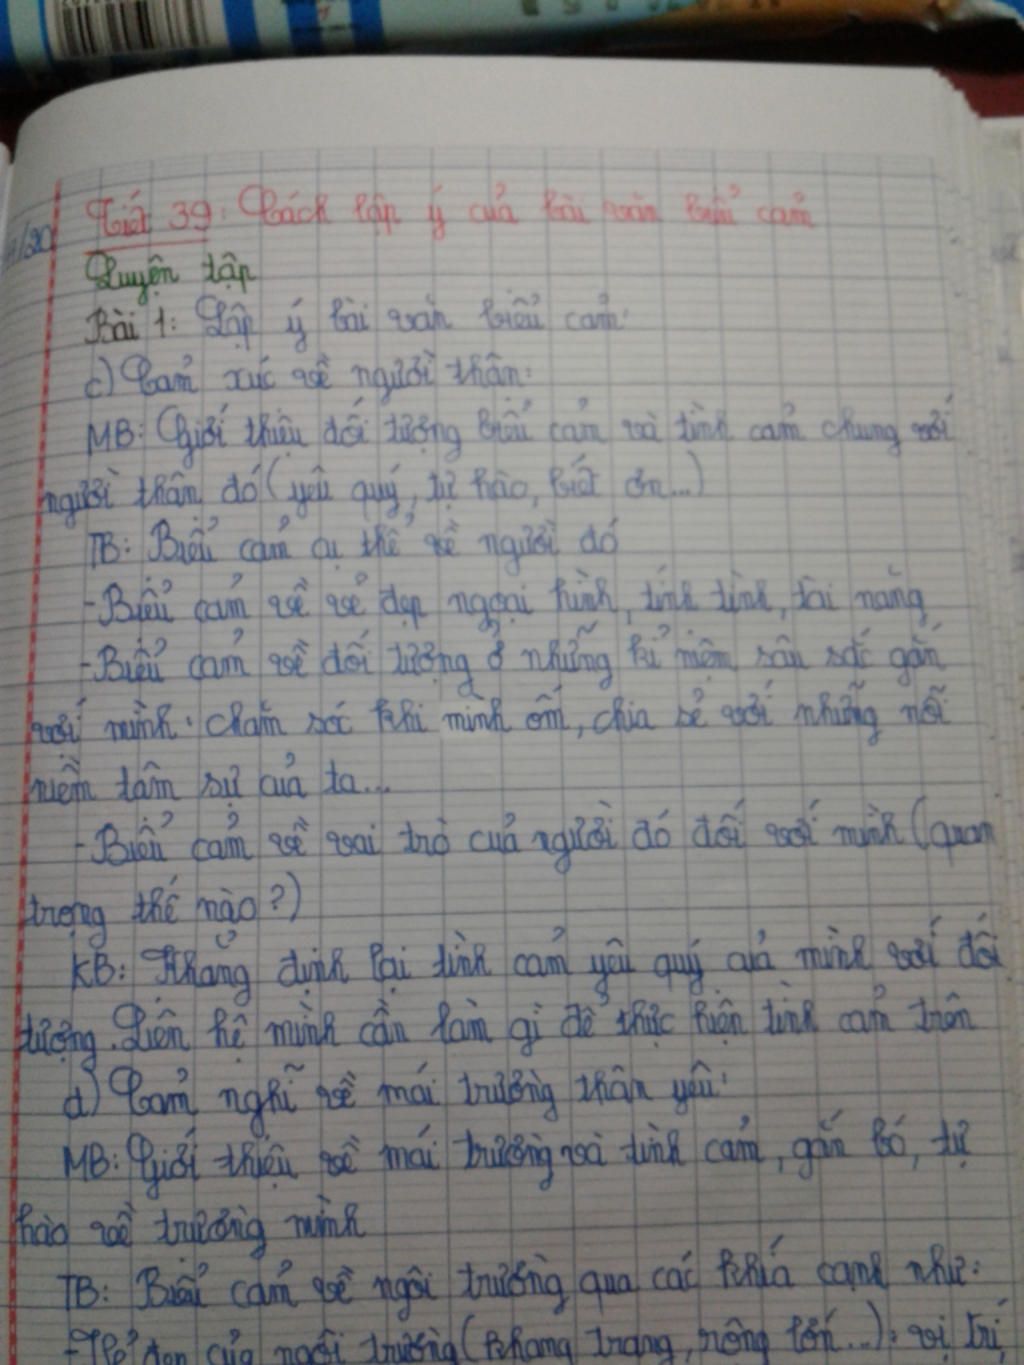 Tiết 39: Cách lập ý của bài văn biểu cảm
Luyện tập
Bài 1: Lập ý bài văn biểu cảm:
c) Cảm xúc về người thân:
MB: Giới thiệu đối tượng biểu cảm và tình cảm chung với
người thân đó (yêu quý, tự hào, biết ơn...)
TB: Biểu cảm cụ thể về người đó
- Biểu cảm về vẻ đẹp ngoại hình, tính tình, tài năng
- Biểu cảm về đối tượng ở những kỉ niệm sâu sắc gắn
với mình: chăm sóc khi mình ốm, chia sẻ với những nỗi
niềm tâm sự của ta...
- Biểu cảm về vai trò của người đó đối với mình (quan
trọng thế nào?)
KB: Khẳng định lại tình cảm yêu quý của mình với đối
tượng. Liên hệ mình cần làm gì để thực hiện tình cảm trên
d) Cảm nghĩ về mái trường thân yêu:
MB: Giới thiệu về mái trường và tình cảm, gắn bó, tự
hào về trường mình
TB: Biểu cảm về ngôi trường qua các khía cạnh như:
- Vẻ đẹp của ngôi trường (khang trang, rộng lớn...): vị trí,